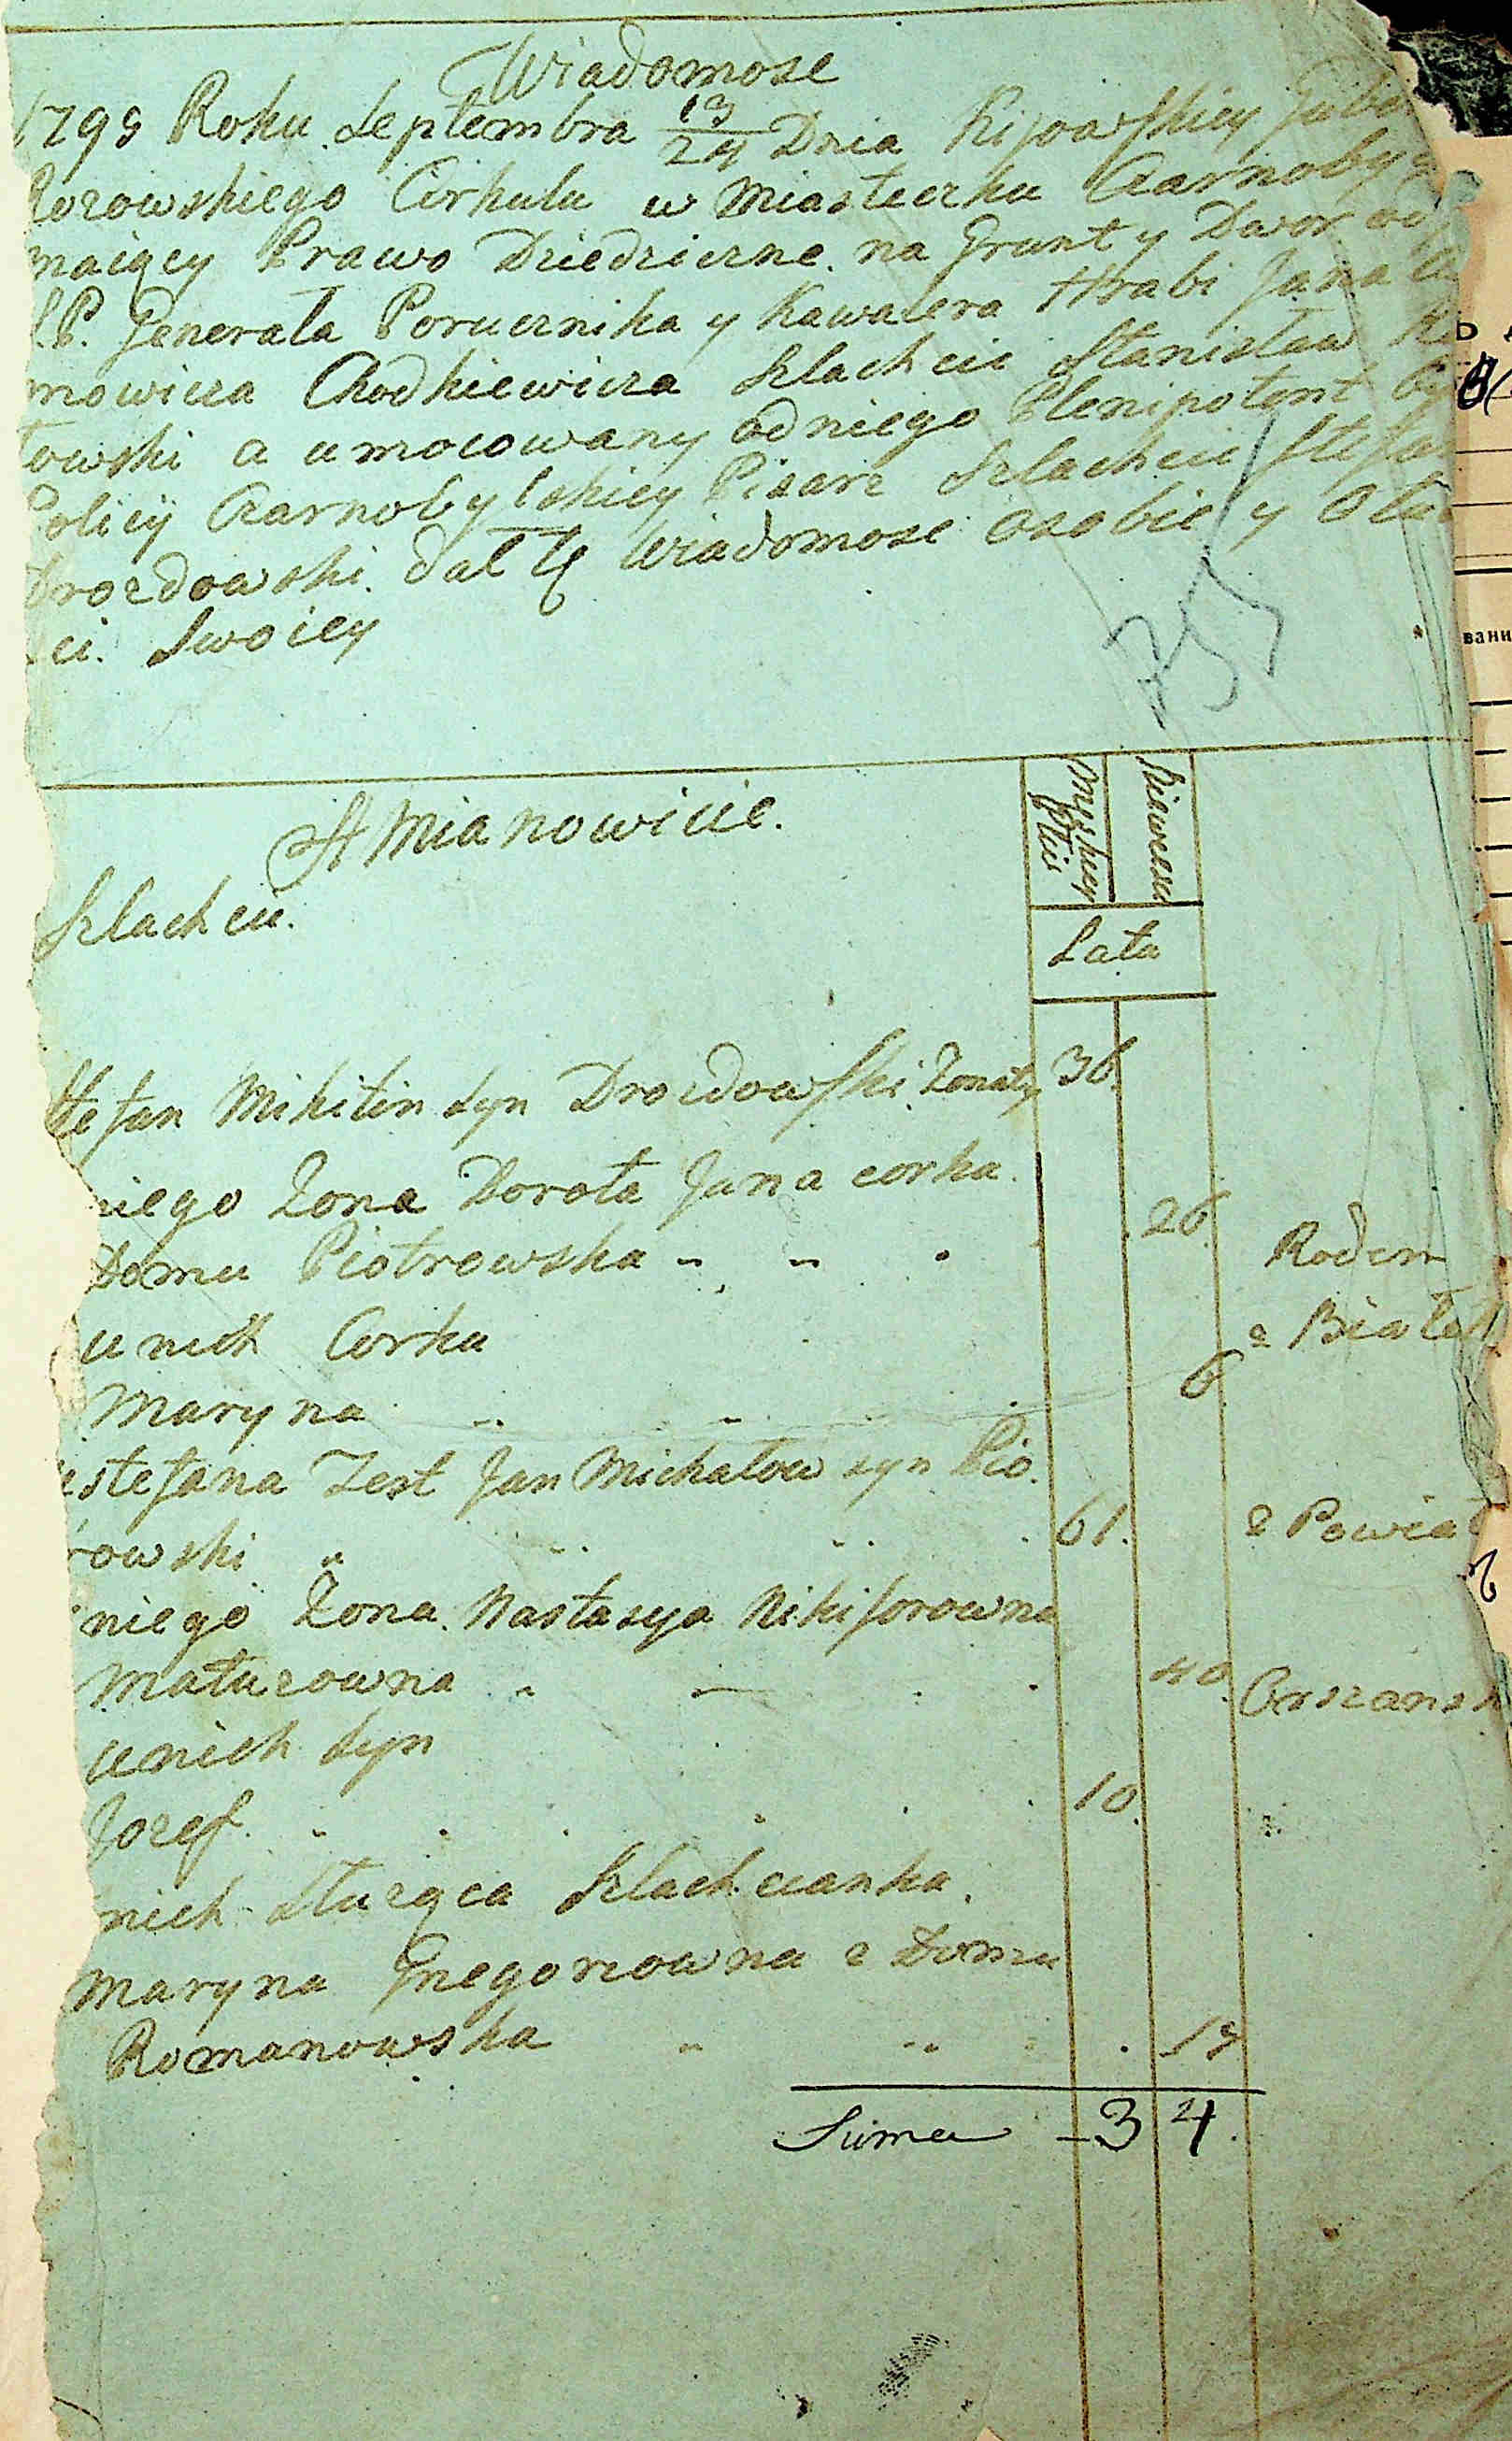 Wiadomosc
1795 Roku Septembra 13/24 Dnia Kijowskiey Gube
Rozowskiego Cirkulu w Miasteczku Czarnoby
maiący Prawo Dziedziczne na Grunt y Dwor od
P. Generała Porucznika y Kawalera Hrabi Jana
mowicza Chodkiewicza Szlachcic Stanisław
towski a umocowany od niego Plenipotent
Policij Czarnobylskiey Pisarz Szlachcic Stefa
Drozdowski dał tę Wiadomosc o sobie y o
ci Swoiey
A Mianowicie.
Lata
Szlachcic.
Stefan Mikitin syn Drozdowski Zonaty 36
niego Zona Dorota Jana corka
Domu Piotrowska 26 Rodem
u nich Corka z Białey
Maryna 6
u Stefana Test Jan Michałow syn Pio.
rowski 61. z Powiat
niego Zona Nastasya Nikiforowna
Matuzowna 40 Orszansk
u nich syn
Jozef 10
nich Słuząca Szlachcianka
Maryna Gregorzowna z Domu
Romanowska
Suma 3 4